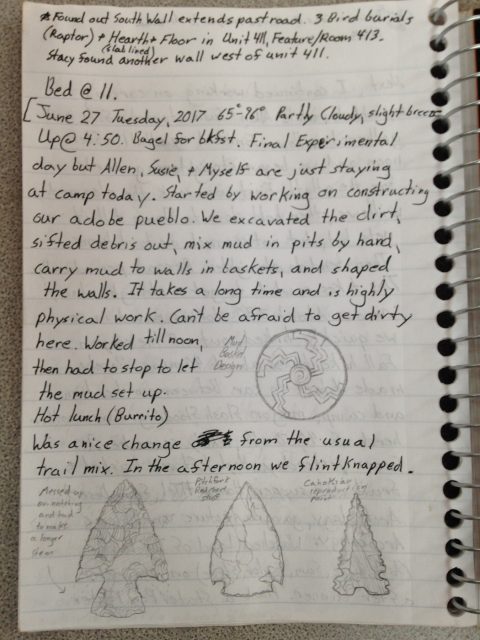 *Found out South Wall extends past road. 3 Bird burials
(Raptor) + Hearth + Floor in Unit 411, Feature/Room 413.
(slab lined)
Stacy found another wall west of unit 411.
Bed @ 11.
[June 27 Tuesday, 2017 65°-96° Partly Cloudy, slight breeze
Up @ 4:50. Bagel for bkfst. Final Experimental
day but Allen, Susie, + Myself are just staying
at camp today. Started by working on constructing
our adobe pueblo. We excavated the dirt,
sifted debris out, mix mud in pits by hand,
carry mud to walls in baskets, and shaped
the walls. It takes a long time and is highly
physical work. Can't be afraid to get dirty
here. Worked till noon,
then had to stop to let
the mud set up.
Mud
Basket
Design
Hot lunch (Burrito)
Was a nice change from the usual
trail mix. In the afternoon we flintknapped.
Messed up
on notching
and had
to make
a longer
stem
Cahokian
reproduction
Point